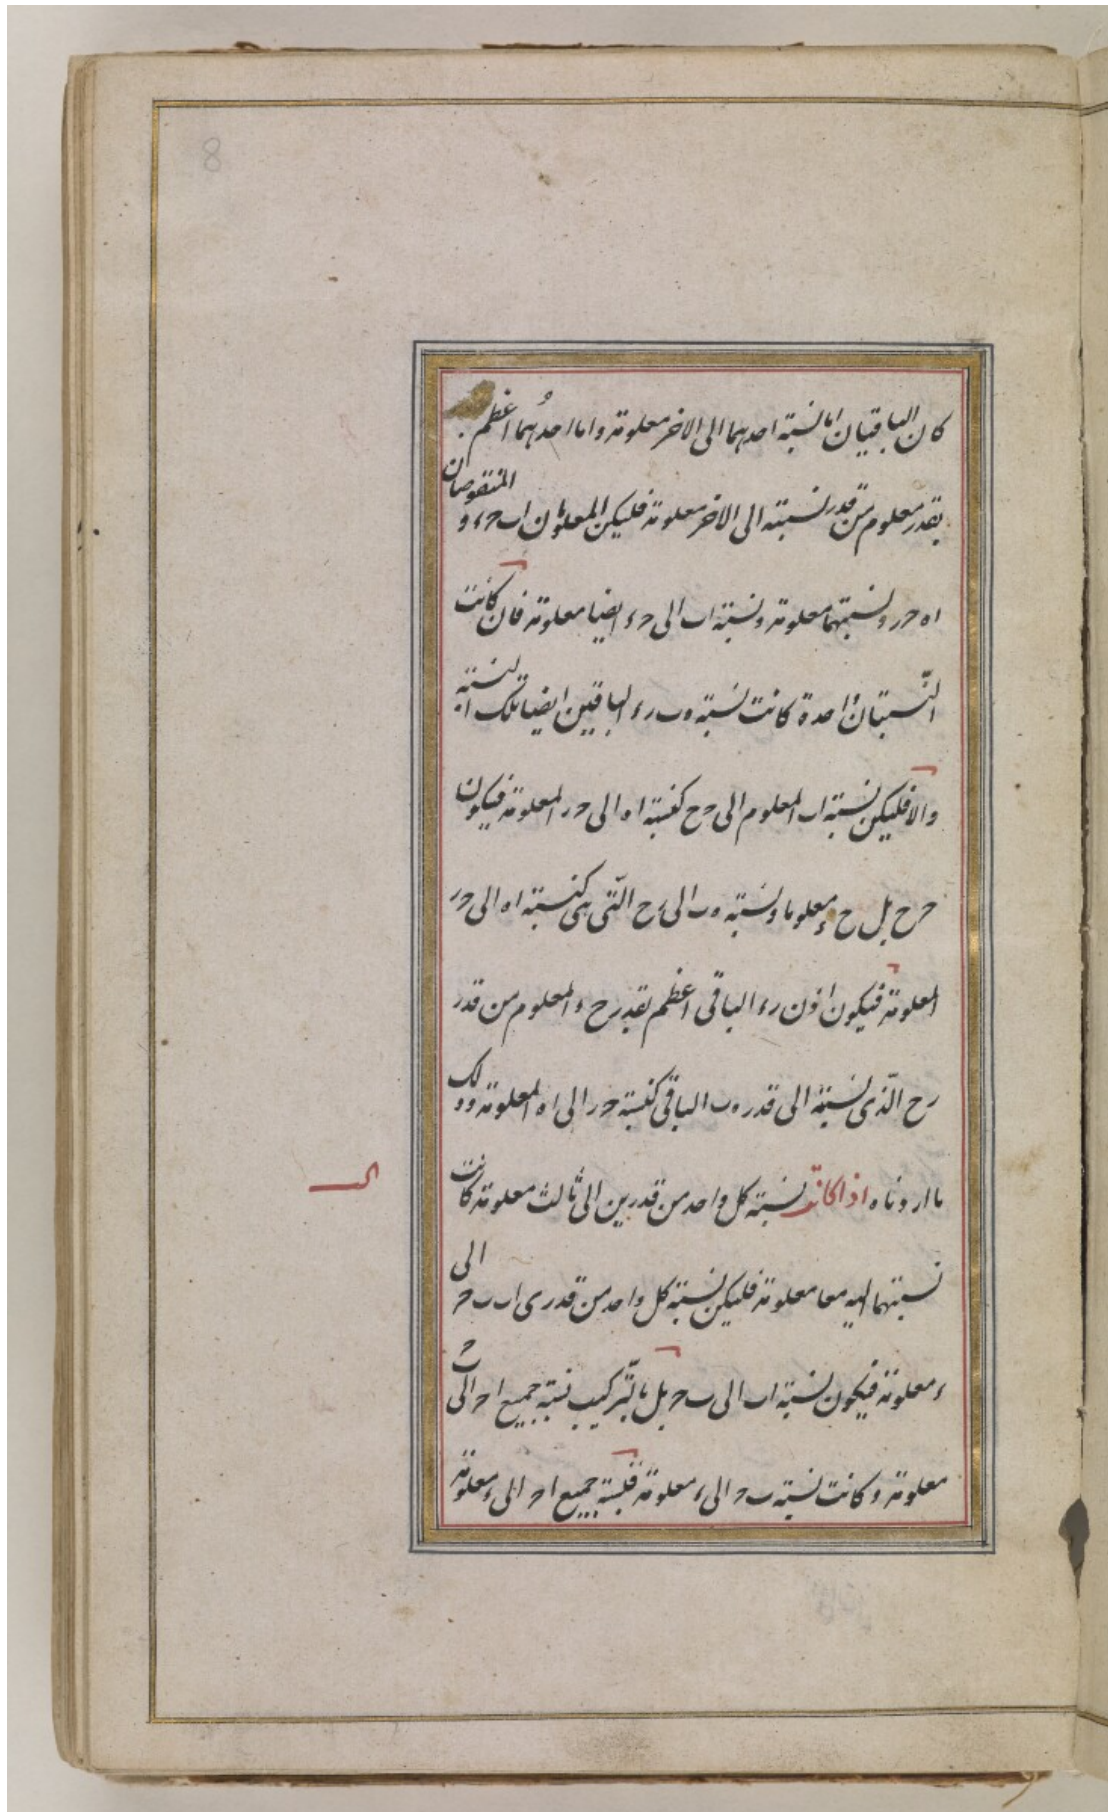 8
كان الباقيان اما نسبة احدهما الى الاخر معلومة واما احدُهما اعظم
بقدر معلوم من قدر نسبته الى الاخر معلومة فليكن المعلومان اب حء و المنقوصان
اه حر ونسبتهما معلومة ونسبة اب الى حء ايضا معلومة فان كانت
النّسبتان واحدة كانت نسبة ه ب رء الباقيين ايضا تلك النسبة
والا فليكن نسبة اب المعلوم الى حح كنسبة اه الى حر المعلومة فيكون
حح بل حء معلوما ونسبة ه ب الى رح الّتى هى كنسبة اه الى حر
المعلومة فيكون اذن رء الباقى اعظم بقدر حء المعلوم من قدر
رح الّذى نسبته الى قدر ه ب الباقى كنسبة حر الى اه المعلومة وذلك
ما اردناه اذا كانت نسبة كل واحد من قدرين الى ثالث معلومة كانت
نسبتهما اليه معا معلومة فليكن نسبة كل واحد من قدرى اب ب ح الى
ء معلومة فيكون نسبة اب الى ب ح بل بالتّركيب نسبة جميع اح الى ب ح
معلومة وكانت نسبة ب ح الى ء معلومة فنسبة جميع اح الى ء معلومة